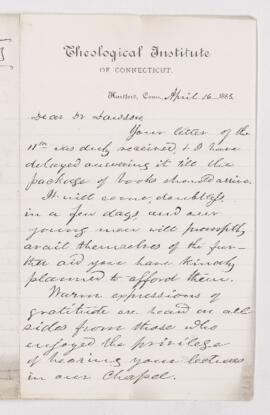 Theological Institute
OF CONNECTICUT.
Hartford, Conn., April 16 1883
Dear Dr Dawson,
Your letter of the
11th was duly received, & I have
delayed answering it till the
package of books should arrive.
It will come, doubtless,
in a few days, and our
young men will promptly
avail themselves of the fur-
ther aid you have kindly
planned to afford them.
Warm expressions of
gratitude are heard on all
sides from those who
enjoyed the privilege
of hearing your lectures
in our Chapel.